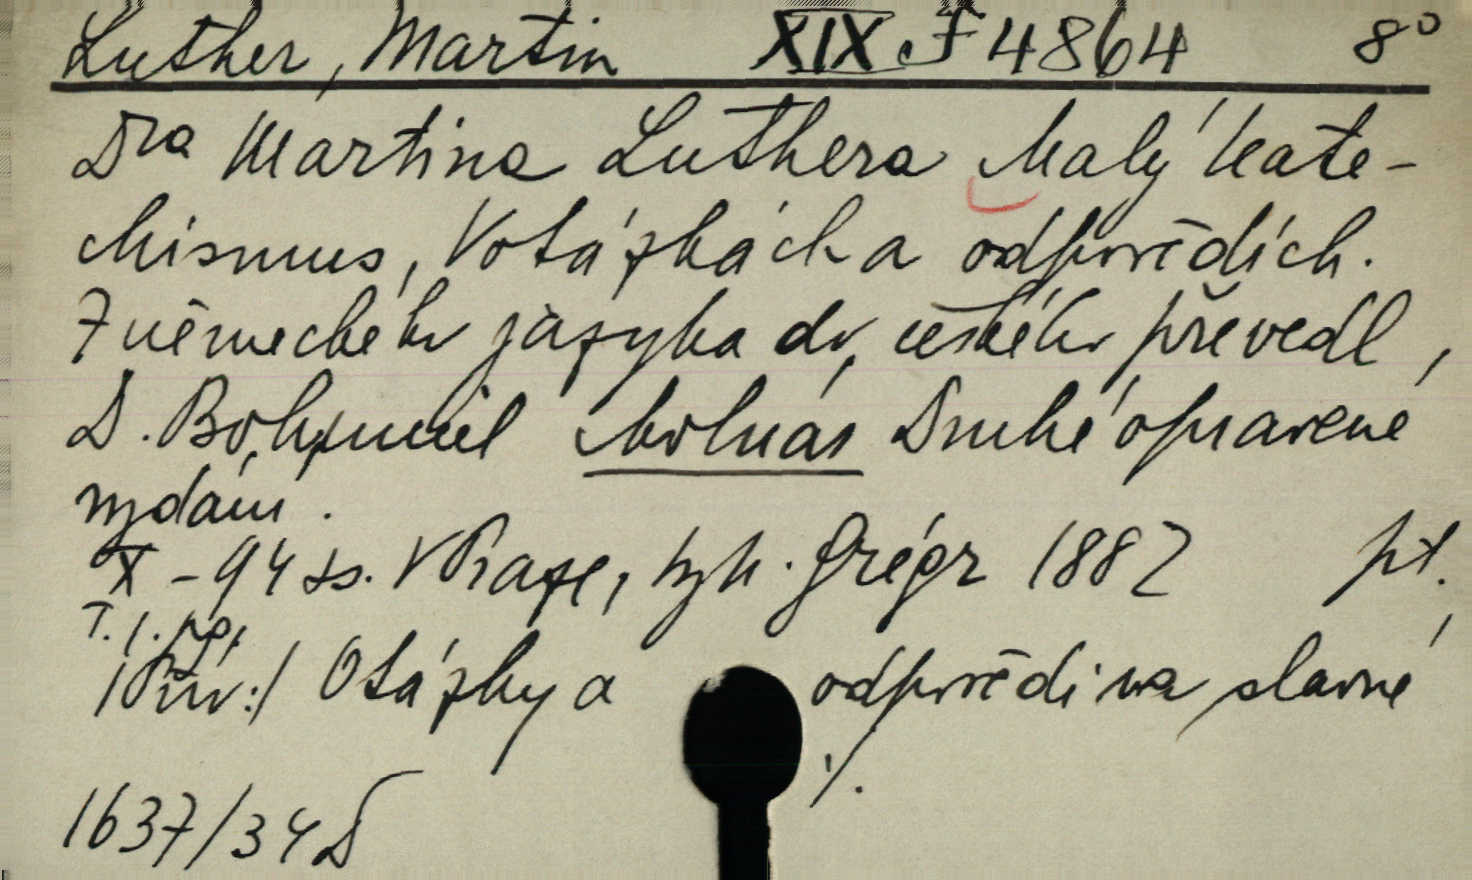 Luther, Martin XIX F 4864 8°
Dra Martina Luthera Malý kate-
chismus, V otázkách a odpovědích.
Z německého jazyka do českého převedl,
D. Bohumil Molnár Druhé opravené
vydání.
X - 94 ss. V Praze, typ. Grégr 1882 pt.
T. 1. np.
/Přív:/ Otázky a odpovědi na slavné
·/.
1637/34 D